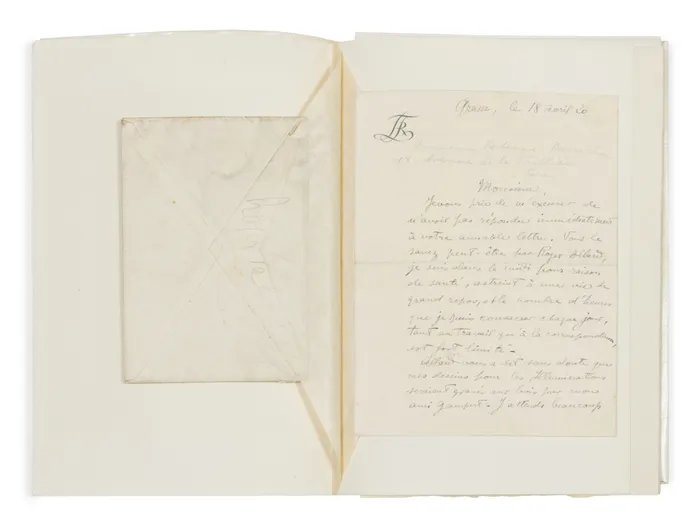 Grasse, le 18 avril 20
LR
Monsieur,
Je vous prie de m'excuser de
n'avoir pas répondu immédiatement
à votre aimable lettre. Vous le
savez peut-être par Roger Allard,
je suis dans le midi pour raison
de santé, astreint à une vie de
grand repos, et le nombre d'heures
que je puis consacrer chaque jour,
tant au travail qu'à la correspondance,
est fort limité -
Allard vous a dit sans doute que
mes dessins pour les Illuminations
seraient gravés sur bois par mon
ami Gaspert. J'attends beaucoup